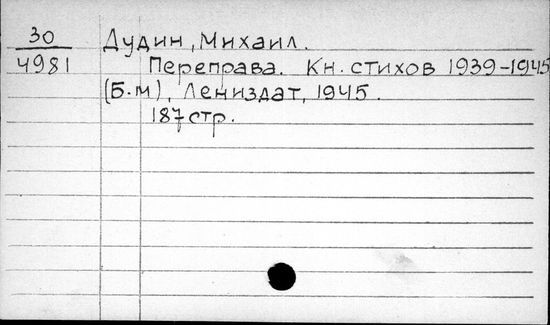 30 Дудин, Михаил.
4981 Переправа. Кн. стихов 1939-1945
(Б.м), Лениздат, 1945.
187 стр.